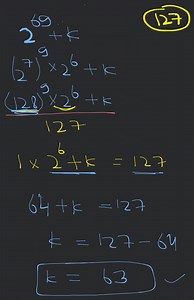 127
2⁶⁹ + k
(2⁷)⁹ × 2⁶ + k
(128)⁹ × 2⁶ + k
127
1 × 2⁶ + k = 127
64 + k = 127
k = 127 - 64
k = 63 ✓